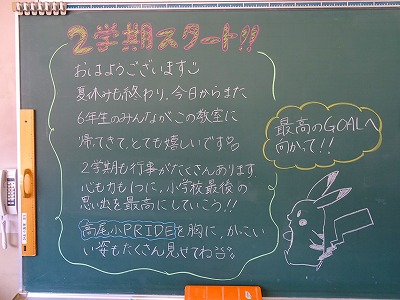 2学期スタート!!
おはようございます
夏休みも終わり、今日からまた
6年生のみんながこの教室に
帰ってきて、とても嬉しいです
2学期も行事がたくさんあります。
心も力も1つに、小学校最後の
思い出を最高にしていこう!!
高尾小PRIDEを胸に、かっこい
い姿もたくさん見せてね
最高のGOALへ
向かって!!